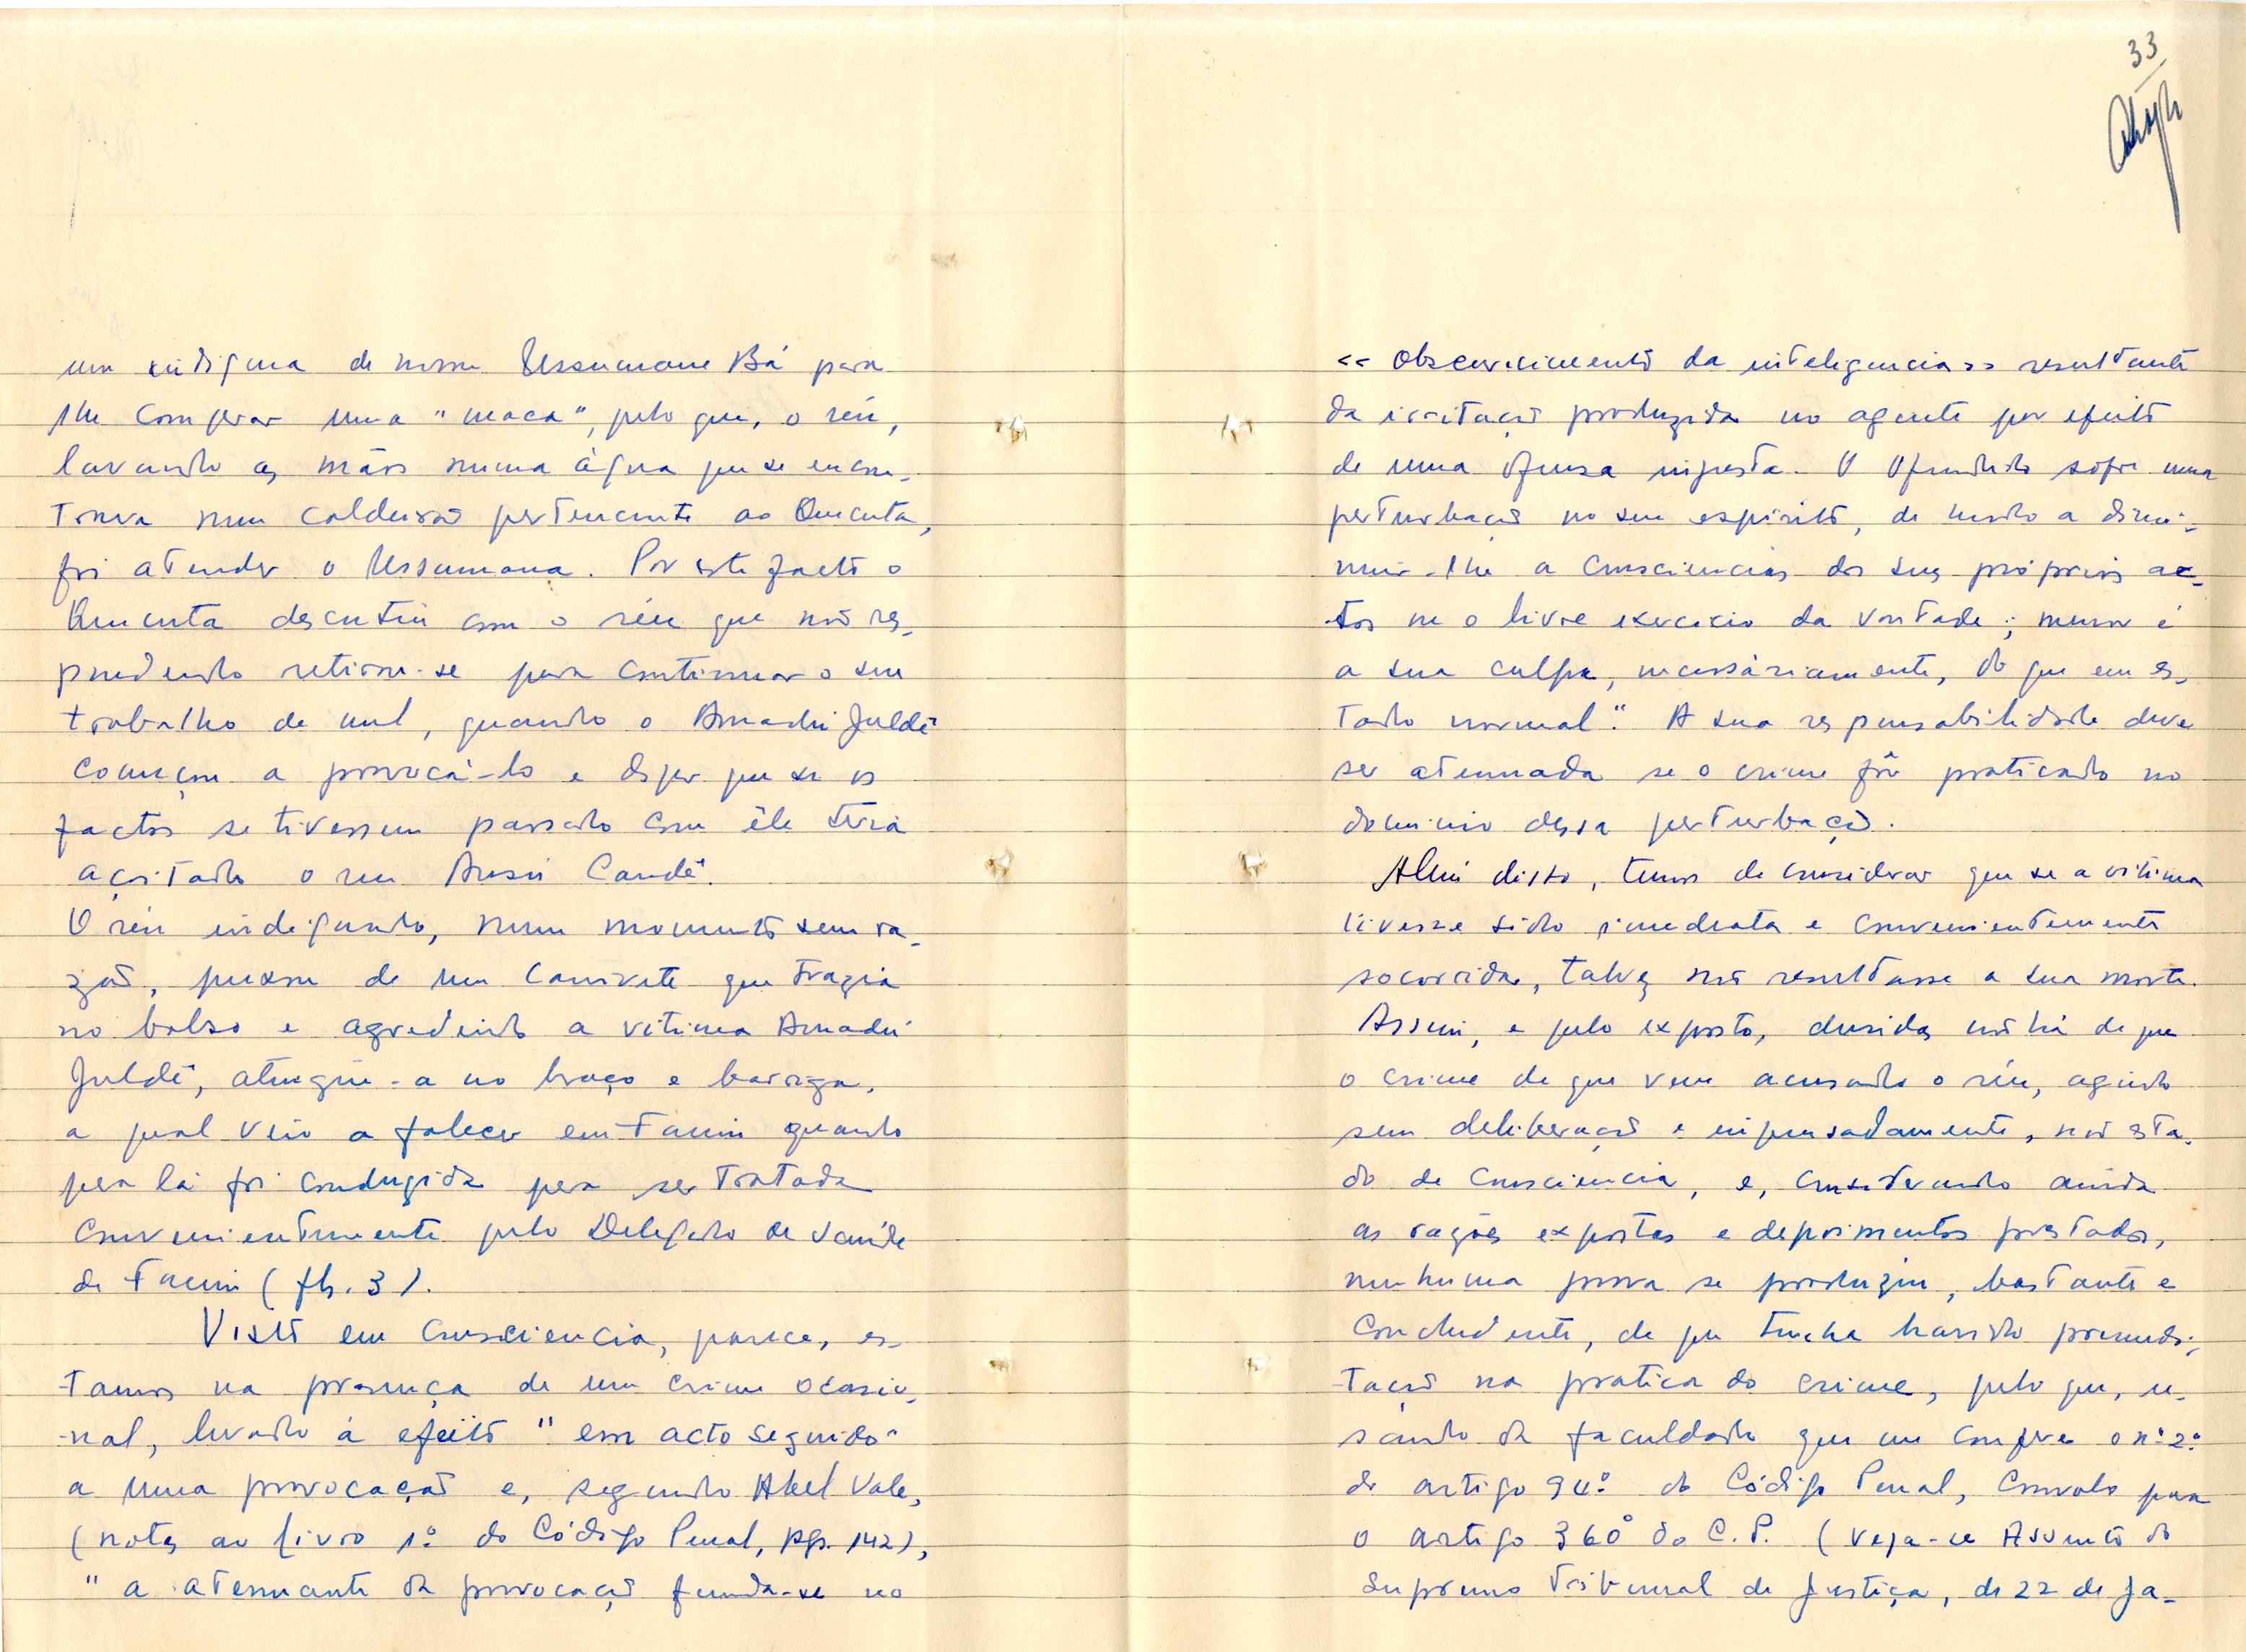 um indígena de nome Ussumane Bá para
lhe comprar uma "maca", pelo que, o réu,
lavando as mãos numa água que se encon-
trava num caldeirão pertencente ao Quecuta,
foi atender o Ussumana. Por este facto o
Quecuta descutiu com o réu que não res-
pondendo retirou-se para continuar o seu
trabalho de mil, quando o Amadú Juldé
começou a provocá-lo e dizer que se os
factos se tivessem passado com êle teria
açoitado o reu Ansú Candé.
O réu indignado, num momento sem ra-
zão, puxou de um canivete que trazia
no bolso e agredindo a vitima Amadú
Juldé, atingiu-a no braço e barriga,
a qual veio a falecer em Farim quando
para lá foi conduzida para ser tratada
convenientemente pelo Delegado de Saúde
de Farim (fls. 3).
Visto em consciencia, parece, es-
tamos na presença de um crime ocasio-
nal, levado á efeito "em acto seguido"
a uma provocação e, segundo Abel Vale,
(notas ao livro 1º do Código Penal, pgs. 142),
"a atenuante da provocação funda-se no
33
<< obscurecimento da inteligencia >> resultante
da irritação produzida no agente por efeito
de uma ofensa injusta. O ofendido sofre uma
perturbação no seu espírito, de modo a dimi-
nuir-lhe a consciencia dos seus próprios ac-
tos ne o livre exercicio da vontade; menor é
a sua culpa, necessáriamente, do que em es-
tado normal". A sua responsabilidade deve
ser atenuada se o crime fôr praticado no
dominio dessa perturbação.
Além disto, temos de considerar que se a vitima
tivesse sido imediata e convenientemente
socorrida, talvez não resultasse a sua morte.
Assim, e pelo exposto, duvidas não há de que
o crime de que vem acusado o réu, agindo
sem deliberação e impensadamente, no esta-
do de consciencia, e, considerando ainda
as razões expostas e depoimentos prestados,
nenhuma prova se produziu, bastante e
concludente, de que tinha havido premedi-
tação na pratica do crime, pelo que, u-
sando da faculdade que me confere o nº 2º
do artigo 94º do Código Penal, convolo para
o artigo 360º do C.P. (veja-se Assento do
Supremo Tribunal de Justiça, de 22 de Ja-